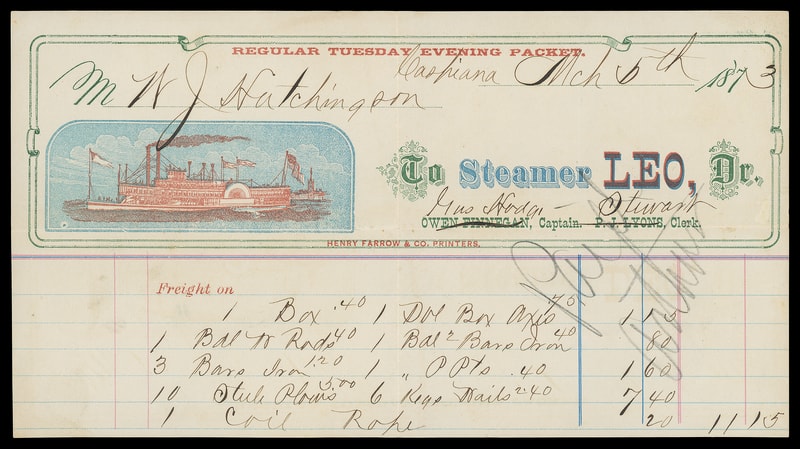 REGULAR TUESDAY EVENING PACKET.
Caspiana Mch 5th 1873
M W J Hutchingson
To Steamer LEO, Dr.
Gus Hodge Stewart
OWEN FINNEGAN, Captain. P. J. LYONS, Clerk.
HENRY FARROW & CO. PRINTERS.
Freight on
1 Box .40 1 Dbl Box Axes 75 1 15
1 Bdl W Rods 40 1 Bdl 2 Bars Iron 40 80
3 Bars Iron 1.20 1 " P Pts .40 1 60
10 Steele Plows 5.00 6 Kegs Nails 2.40 7 40
1 Coil Rope 20 11 15
Paid